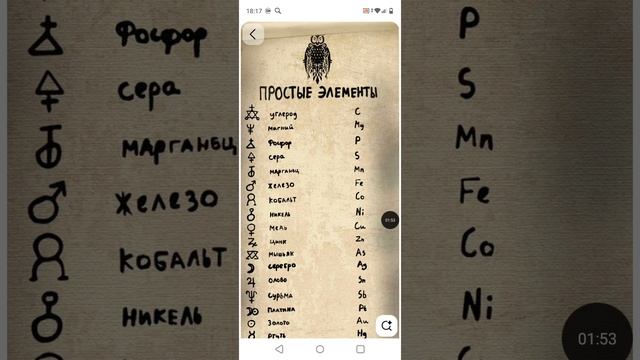 18:17
ПРОСТЫЕ ЭЛЕМЕНТЫ
углерод C
магний Mg
фосфор P
сера S
марганец Mn
железо Fe
кобальт Co
никель Ni
медь Cu
цинк Zn
мышьяк As
серебро Ag
олово Sn
сурьма Sb
платина Pt
золото Au
ртуть Hg
01:53
фосфор P
сера S
марганец Mn
железо Fe
кобальт Co
никель Ni
01:53